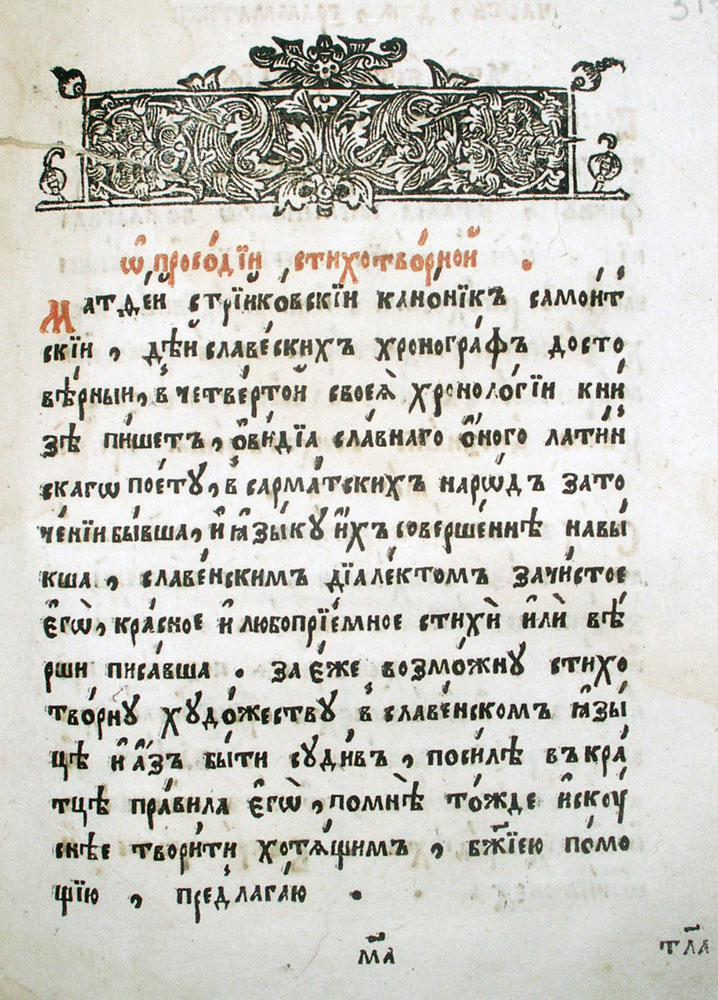 Ѡ просо́дїи стихотво́рной .
Матѳе́й стрїйко́вскїй канѡ́никъ самоит
скїй , дѣ́й славе́нскихъ хроно́графъ досто
вѣ́рный , в четве́ртой своея̀ хроноло́гїи кни
зѣ пи́шетъ , ѻ҆ви́дїа сла́внаго ѻ҆́ного лати́н
скагѡ пое́ту , в сарма́тскихъ наро́дъ зато
че́нїи бы́вша , и҆ ꙗ҆зы́ку и҆́хъ соверше́ннѣ навы́
кша , славе́нскимъ дїале́ктомъ за чи́стое
є҆гѡ̀ , кра́сное и҆ любопрїе́мное стихѝ и҆лѝ вѣ́
рши писа́вша . За є҆́же возмо́жну стихо
тво́рну худо́жеству в славе́нскомъ ꙗ҆зы́
цѣ и҆ а҆́зъ бы́ти суди́въ , поси́лѣ въкра́
тцѣ пра́вила є҆гѡ̀ , помнѣ̀ то́жде и҆скоу́
снѣе твори́ти хотя́щимъ , бж҃їею помо
щїю , предлага́ю .
м҃а
тл҃а